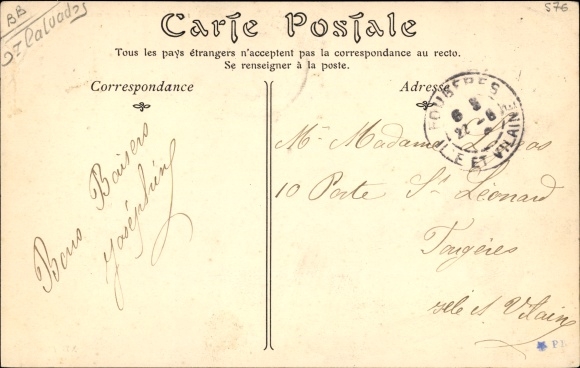 BB
Calvados
576
Carte Postale
Tous les pays étrangers n'acceptent pas la correspondance au recto.
Se renseigner à la poste.
Correspondance
Adresse
FOUGERES
ILLE ET VILAINE
Bons Baisers
Joséphine
Mr Madame
10 Porte St Léonard
Fougères
Ille et Vilain